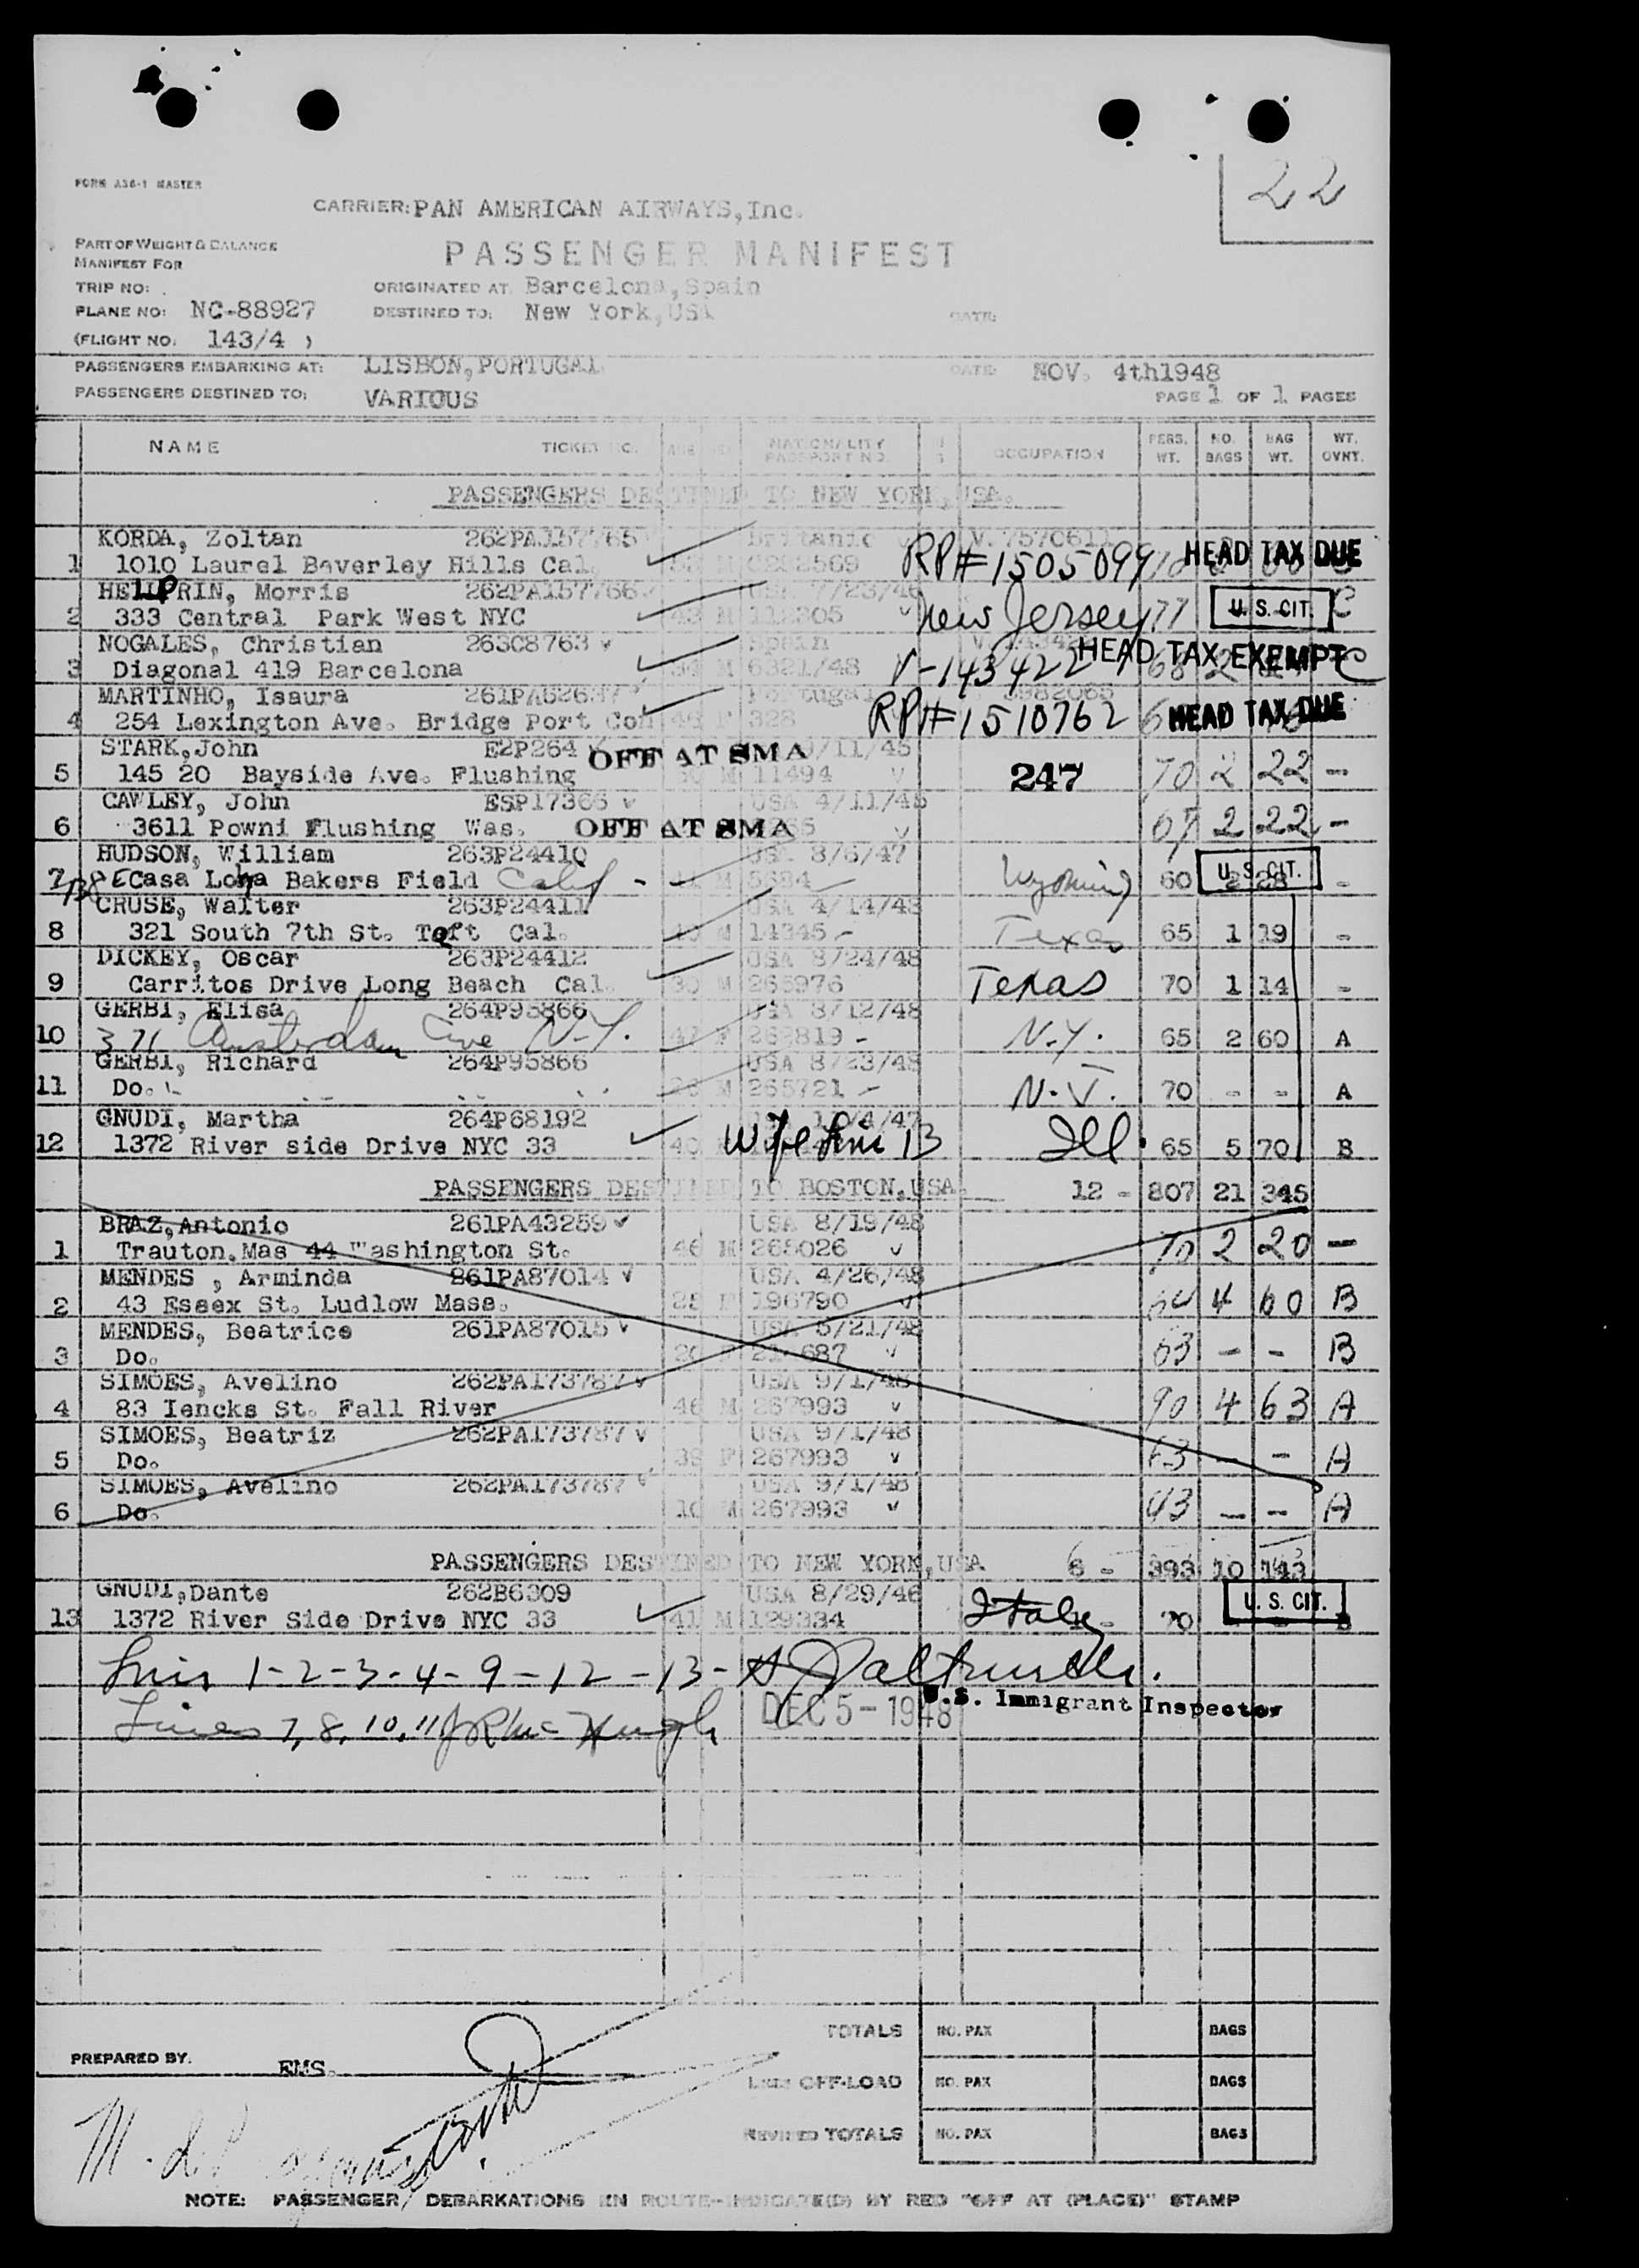 22
FORM A36-1 MASTER
CARRIER: PAN AMERICAN AIRWAYS, Inc.
PART OF WEIGHT & BALANCE
MANIFEST FOR
PASSENGER MANIFEST
TRIP NO:
ORIGINATED AT Barcelona, Spain
PLANE NO: NC-88927
DESTINED TO: New York, USA
DATE:
(FLIGHT NO. 143/4 )
PASSENGERS EMBARKING AT: LISBON, PORTUGAL
DATE: NOV. 4th1948
PASSENGERS DESTINED TO: VARIOUS
PAGE 1 OF 1 PAGES
NAME TICKET NO. AGE SEX NATIONALITY PASSPORT NO. OCCUPATION PERS. WT. NO. BAGS BAG WT. WT. OVNT.
PASSENGERS DESTINED TO NEW YORK, USA.
KORDA, Zoltan 262PA157765 Britanic V. 7570611
1 1010 Laurel Beverley Hills Cal. M RP#1505099 HEAD TAX DUE
HELLPRIN, Morris 262PA157766 USA 7/23/46
2 333 Central Park West NYC 43 M 112305 New Jersey 77 U. S. CIT. C
NOGALES, Christian 263C8763 Spain
3 Diagonal 419 Barcelona 34 M 6321/48 V-143422 HEAD TAX EXEMPT 68 2 C
MARTINHO, Isaura Portugal
4 254 Lexington Ave. Bridge Port Con F 328 RP#1510762 HEAD TAX DUE
STARK, John E2P264 OFF AT SMA /11/45
5 145 20 Bayside Ave. Flushing M 11494 247 70 2 22 -
CAWLEY, John ESP17366 USA 4/11/45
6 3611 Powni Flushing Was. OFF AT SMA 67 2 22 -
HUDSON, William 263P24410 USA 8/6/47
7 E Casa Loma Bakers Field Calif - M 5684 Wyoming 60 2 28 U. S. CIT. -
CRUSE, Walter 263P24411 USA 4/14/48
8 321 South 7th St. Taft Cal. M 14345 - Texas 65 1 19 -
DICKEY, Oscar 263P24412 USA 8/24/48
9 Carritos Drive Long Beach Cal. 30 M 265976 Texas 70 1 14 -
GERBI, Elisa 264P95866 USA 8/12/48
10 371 Amsterdam Ave N.Y. 47 F 262819 - N.Y. 65 2 60 A
GERBI, Richard 264P95866 USA 8/23/48
11 Do. M 265721 - N.Y. 70 - - A
GNUDI, Martha 264P68192 10/4/47
12 1372 River side Drive NYC 33 40 Wife line 13 Ill. 65 5 70 B
PASSENGERS DESTINED TO BOSTON, USA. 12 - 807 21 345
BRAZ, Antonio 261PA43259 USA 8/19/48
1 Trauton. Mas 44 Washington St. 46 M 265026 70 2 20 -
MENDES , Arminda 261PA87014 USA 4/26/48
2 43 Essex St. Ludlow Mass. F 196790 64 4 60 B
MENDES, Beatrice 261PA87015 USA 5/21/48
3 Do. 20 F 687 63 - - B
SIMOES, Avelino 262PA173787 USA 9/1/48
4 83 Iencks St. Fall River 46 M 267993 90 4 63 A
SIMOES, Beatriz 262PA173787 USA 9/1/48
5 Do. F 267993 63 - - A
SIMOES, Avelino 262PA173787 USA 9/1/48
6 Do. 10 M 267993 43 - - A
PASSENGERS DESTINED TO NEW YORK, USA 6 - 393 10 143
GNUDI, Dante 262B6309 USA 8/29/46
13 1372 River Side Drive NYC 33 41 M 129334 Italy 70 U. S. CIT. B
Lines 1-2-3-4-9-12-13-
U.S. Immigrant Inspector
Lines 7, 8, 10, 11 DEC 5 - 1948
TOTALS NO. PAX BAGS
PREPARED BY. EMS.
LESS OFF-LOAD NO. PAX BAGS
REVISED TOTALS NO. PAX BAGS
NOTE: PASSENGER DEBARKATIONS EN ROUTE-INDICATE(D) BY RED "OFF AT (PLACE)" STAMP